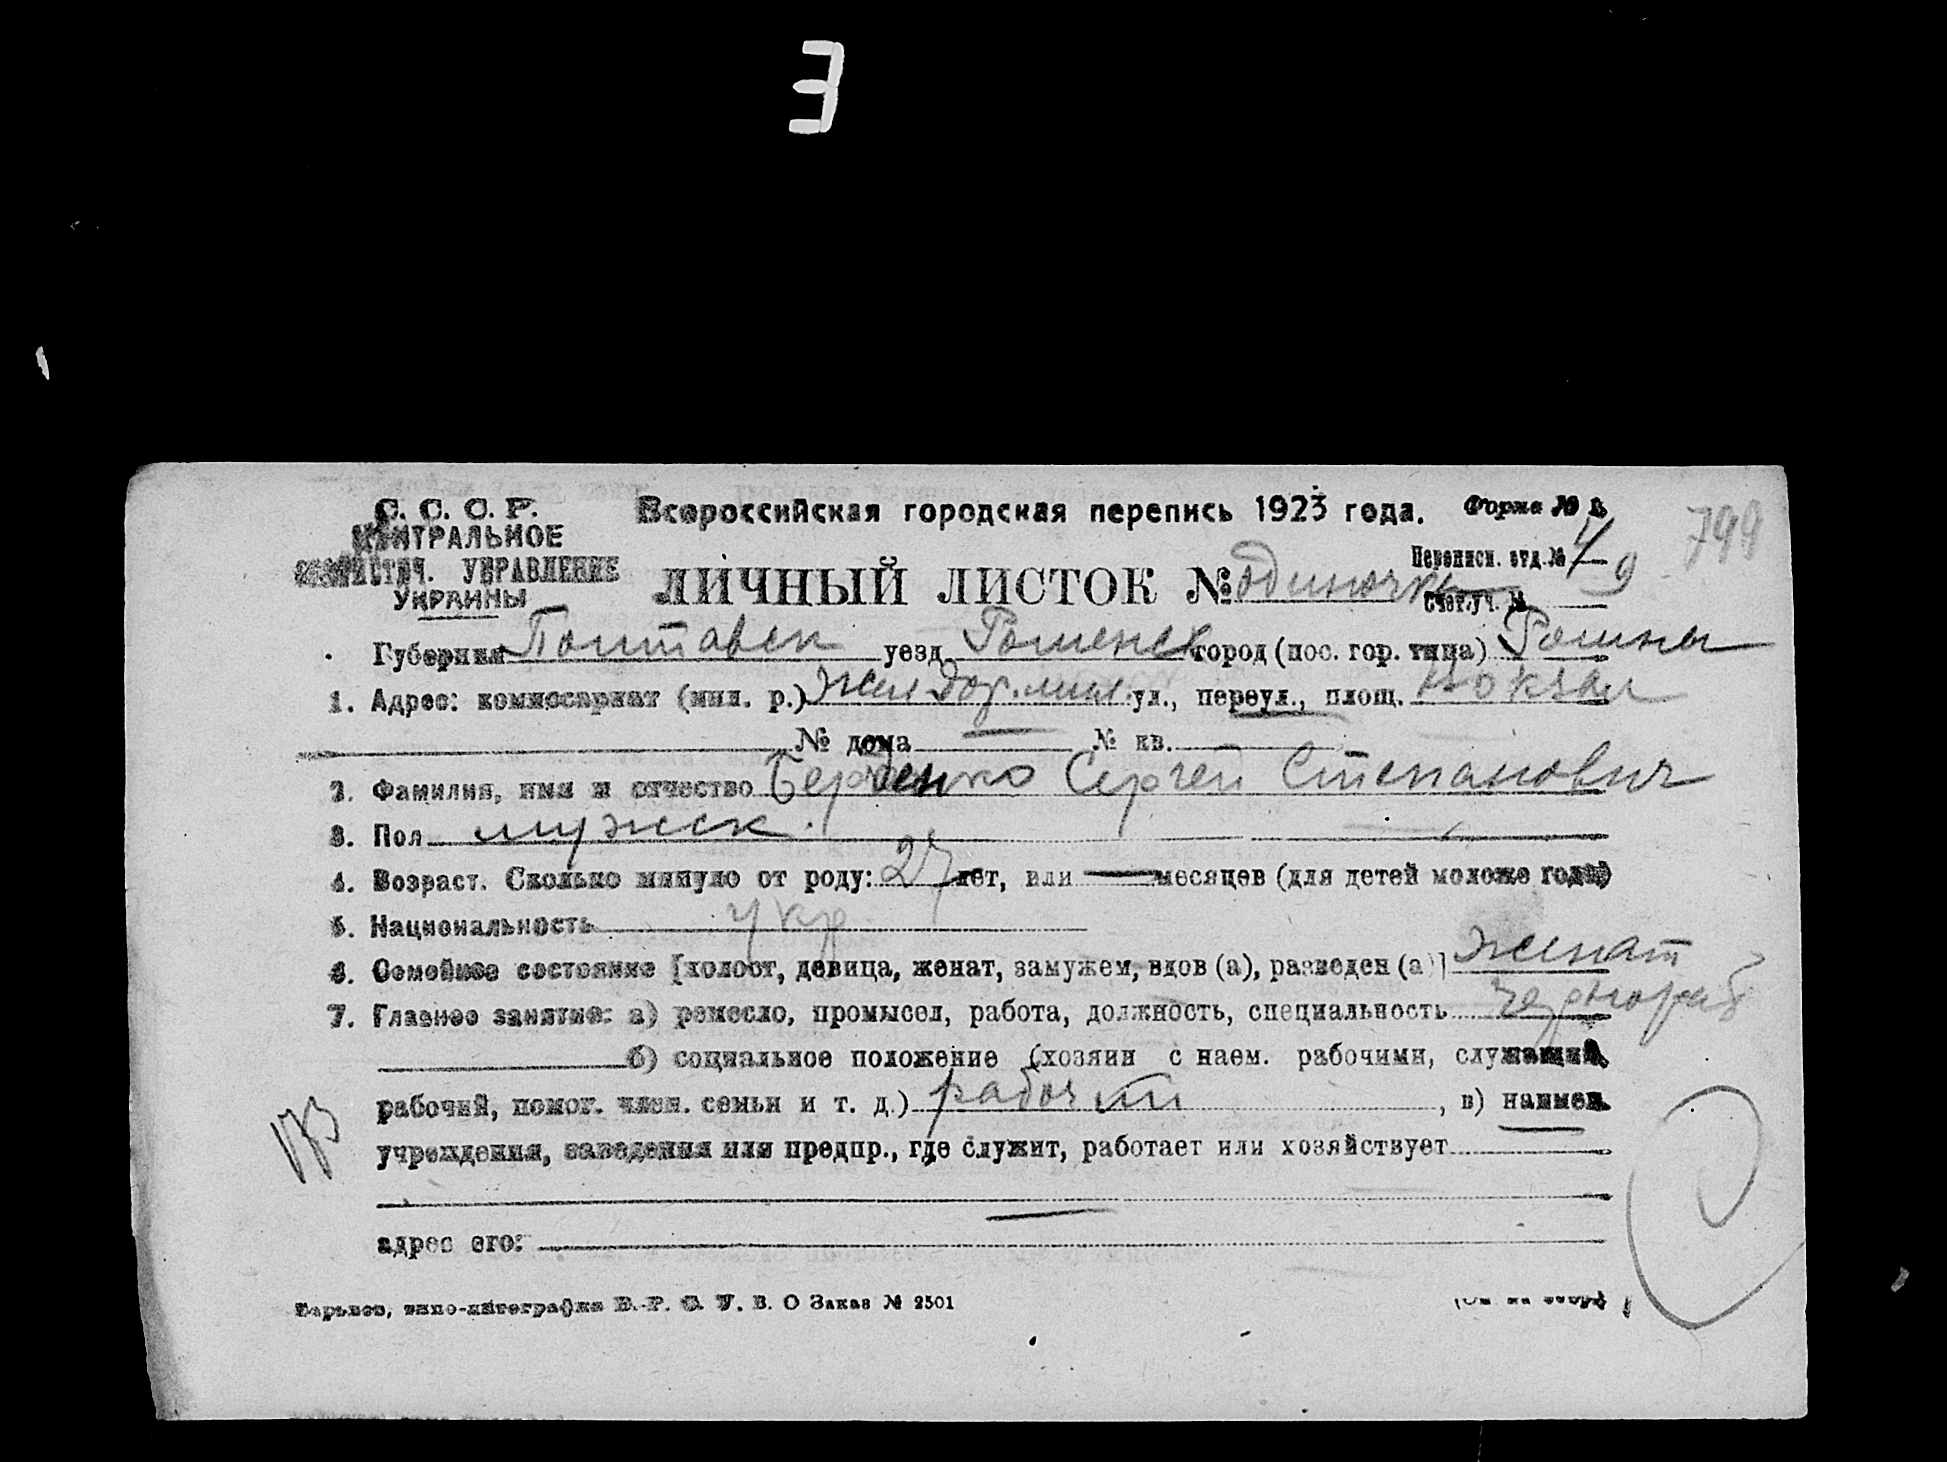 3
С. С. С. Р.
ЦЕНТРАЛЬНОЕ
СТАТИСТИЧ. УПРАВЛЕНИЕ
УКРАИНЫ
Всероссийская городская перепись 1923 года.
Форма № 1.
799
Переписн. отд. № 4
ЛИЧНЫЙ ЛИСТОК № одиночки
Счет. уч. № 9
Губерния Полтавск уезд Роменск город (пос. гор. типа) Ромны
1. Адрес: комиссариат (мил. р.) Жел дор. мил. ул., переул., площ. Вокзал
№ дома № кв.
2. Фамилия, имя и отчество Сергей Степанович
3. Пол мужск.
4. Возраст. Сколько минуло от роду: 27 лет, или — месяцев (для детей моложе года)
5. Национальность укр
6. Семейное состояние [холост, девица, женат, замужем, вдов (а), разведен (а)] женат
7. Главное занятие: а) ремесло, промысел, работа, должность, специальность чернораб
б) социальное положение (хозяин с наем. рабочими, служащий,
рабочий, помог. член. семьи и т. д.) рабочий , в) наимен.
учреждения, заведения или предпр., где служит, работает или хозяйствует
адрес его:
Харьков, типо-литография В. Заказ № 2501
(См. на обор.)